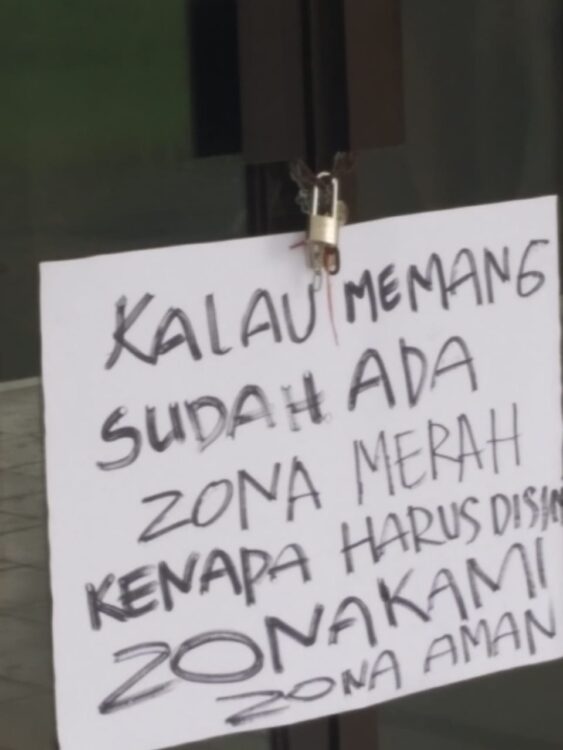 KALAU MEMANG
SUDAH ADA
ZONA MERAH
KENAPA HARUS DISIN
ZONA KAMI
ZONA AMAN